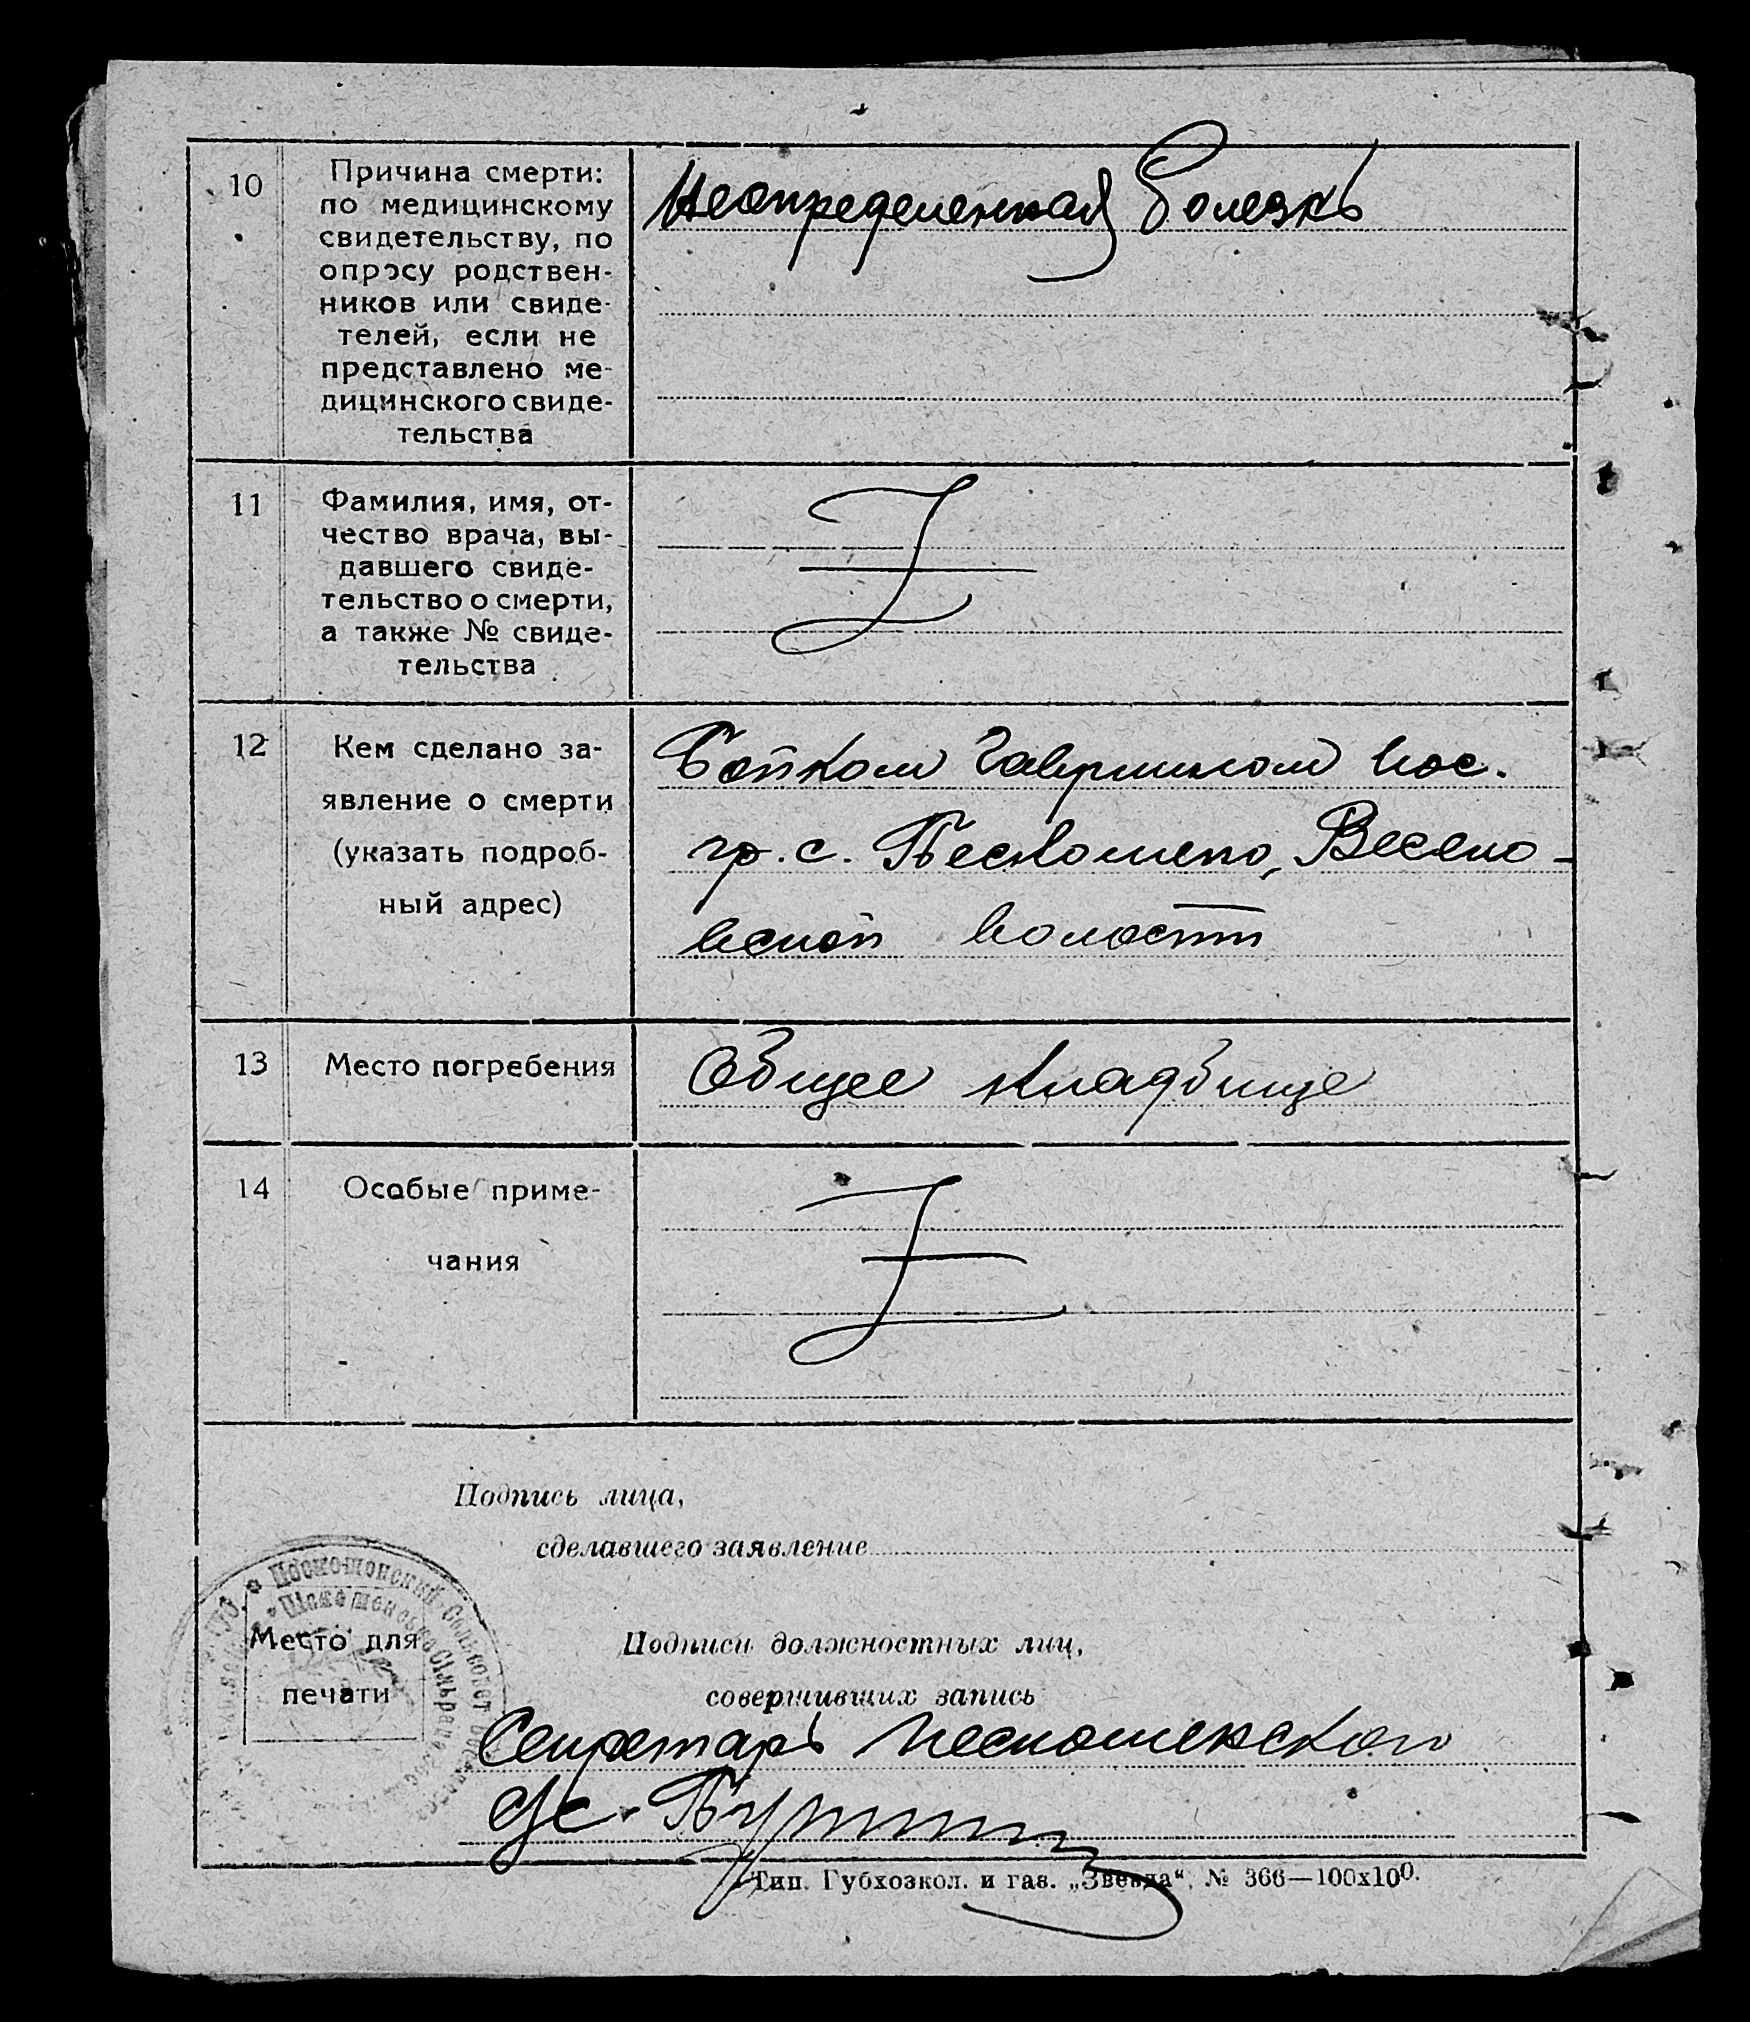 10
Причина смерти:
по медицинскому
свидетельству, по
опросу родствен-
ников или свиде-
телей, если не
представлено ме-
дицинского свиде-
тельства
Неопределенная болезнь
11
Фамилия, имя, от-
чество врача, вы-
давшего свиде-
тельство о смерти,
а также № свиде-
тельства
Z
12
Кем сделано за-
явление о смерти
(указать подроб-
ный адрес)
Гаврилом
гр. с. Весело-
вской волости
13
Место погребения
Общее кладбище
14
Особые приме-
чания
Z
Подпись лица,
сделавшего заявление
Место для
печати
Подписи должностных лиц,
совершивших запись
Секретарь Пескошенского
с/с.
Тип. Губхозкол. и газ. „Звезда“, № 366—100x100.